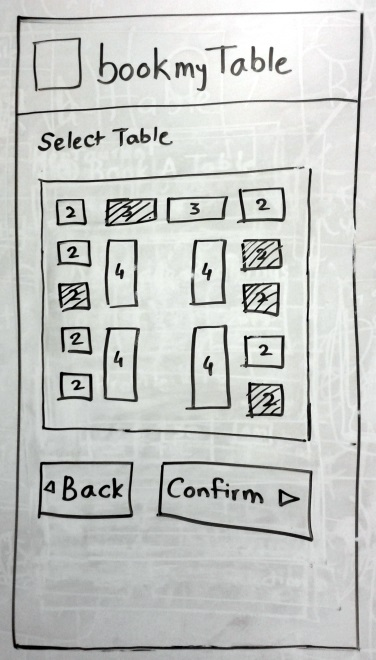 bookmyTable
Select Table
2 3 3 2
2 4 4 2
2 2
2 4 4 2
2 2
◁ Back Confirm ▷